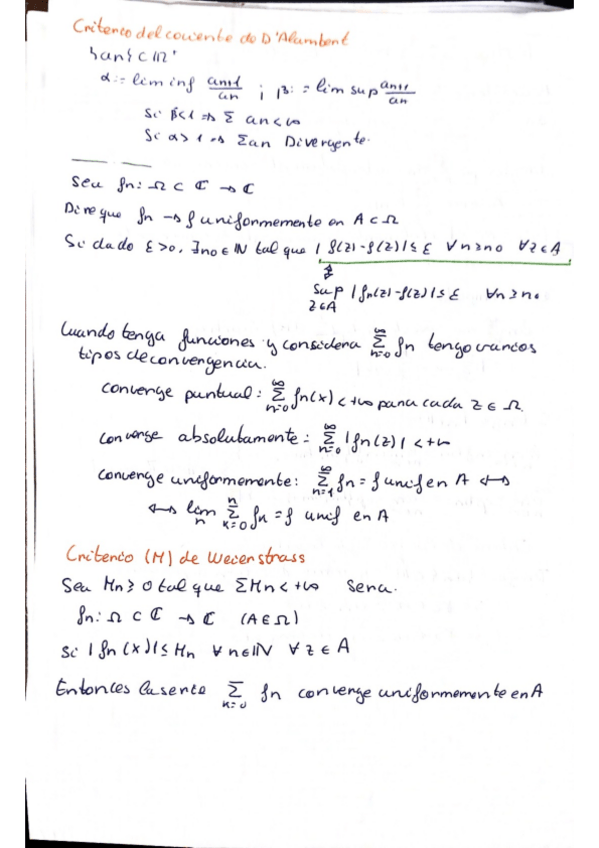 Criterio del cociente de D'Alambert
{an} ⊂ ℝ+
α := lim inf an+1/an ; β := lim sup an+1/an
Si β<1 ⇒ Σ an<∞
Si α>1 ⇒ Σan Divergente.
Sea fn: Ω ⊂ ℂ → ℂ
Dire que fn → f uniformemente en A ⊂ Ω
Si dado ε>0, ∃n0 ∈ ℕ tal que | f(z) - f(z)| ≤ ε ∀n≥n0 ∀z∈A
⇕
Sup | fn(z) - f(z)| ≤ ε ∀n≥n0
z∈A
Cuando tenga funciones y considera Σ∞n=0 fn tengo varios
tipos de convergencia.
converge puntual: Σ∞n=0 fn(x) < +∞ para cada z ∈ Ω.
converge absolutamente: Σ∞n=0 |fn(z)| < +∞
converge uniformemente: Σ∞n=1 fn = f unif en A ↔
↔ lim n Σn k=0 fn = f unif en A
Criterio (M) de Weierstrass
Sea Mn ≥ 0 tal que ΣMn < +∞ sera.
fn: Ω ⊂ ℂ → ℂ (A∈Ω)
Si |fn(x)| ≤ Mn ∀n∈ℕ ∀z∈A
Entonces la serie Σ k=0 fn converge uniformemente en A